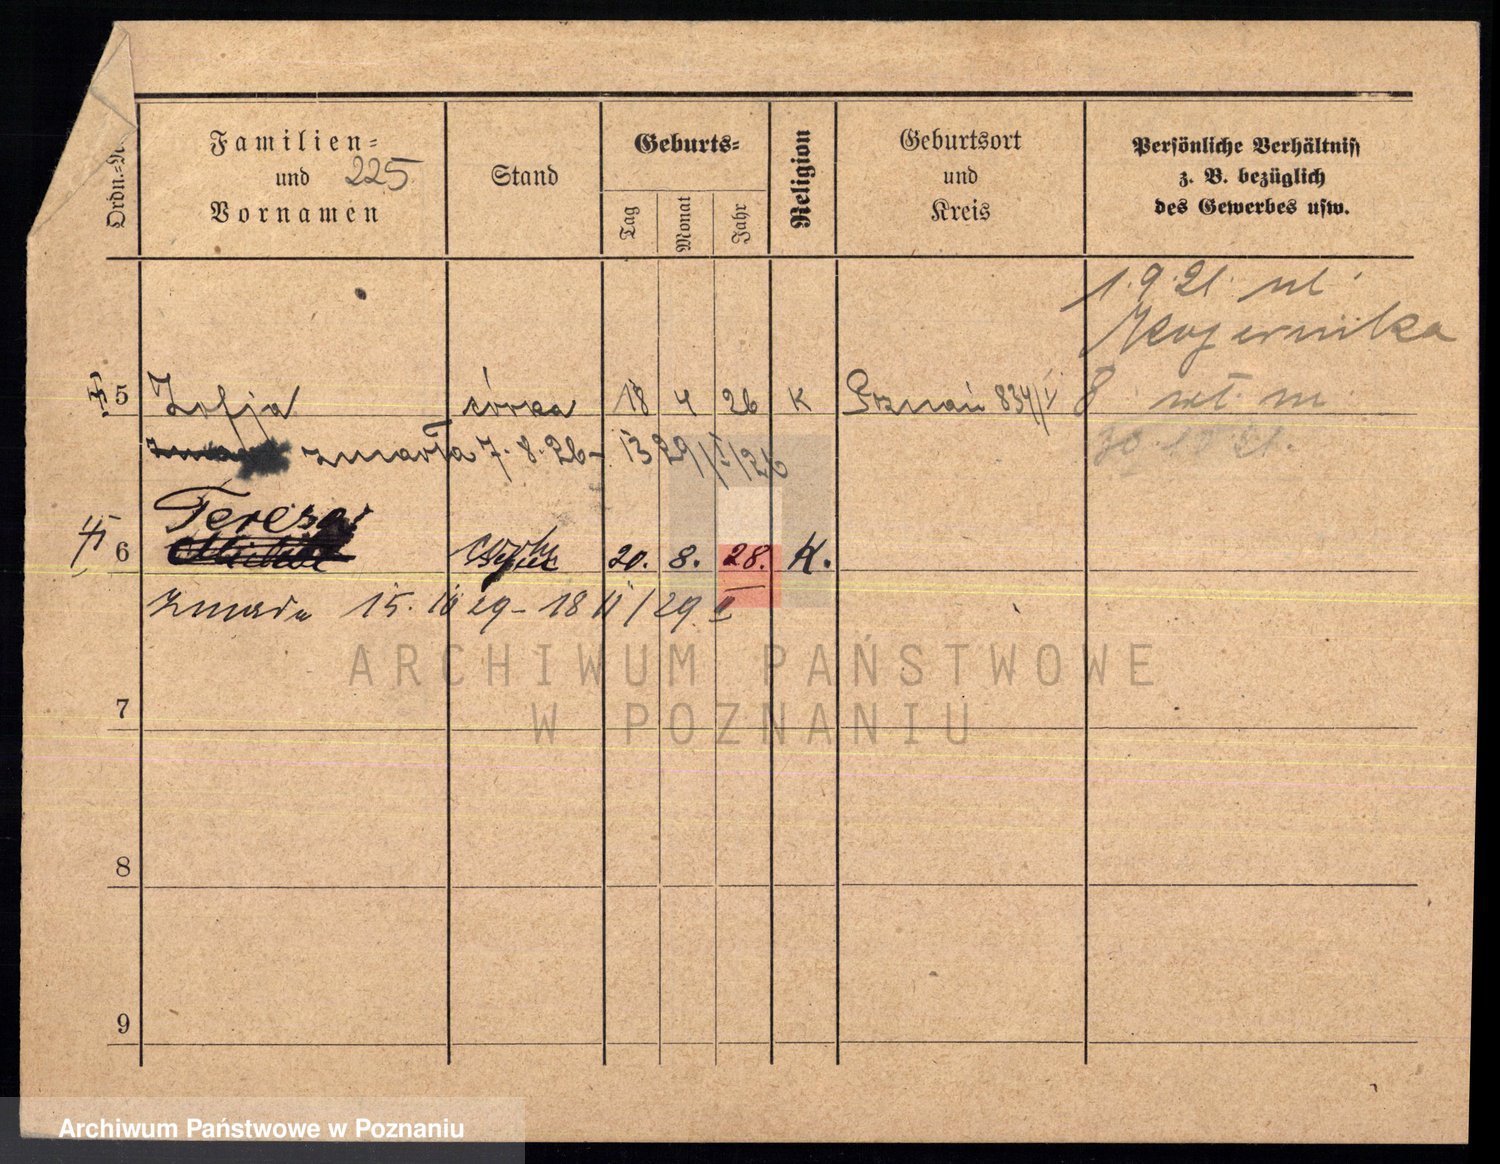 Ordn.=N.
Familien=
und 225
Vornamen
Stand
Geburts=
Tag
Monat
Jahr
Religion
Geburtsort
und
Kreis
Persönliche Verhältniss
z. B. bezüglich
des Gewerbes usw.
1.9.21. ul.
Kopernika
8 mt. m
30.10.21.
5 Zofja córka 18 4 26 K Poznań 834/V
zmarła 7.8.26 -
Teresa
6 córka 20. 8. 28. K.
zmarła 15. 29 - 18 /29 II
7
8
9
ARCHIWUM PAŃSTWOWE
W POZNANIU
Archiwum Państwowe w Poznaniu